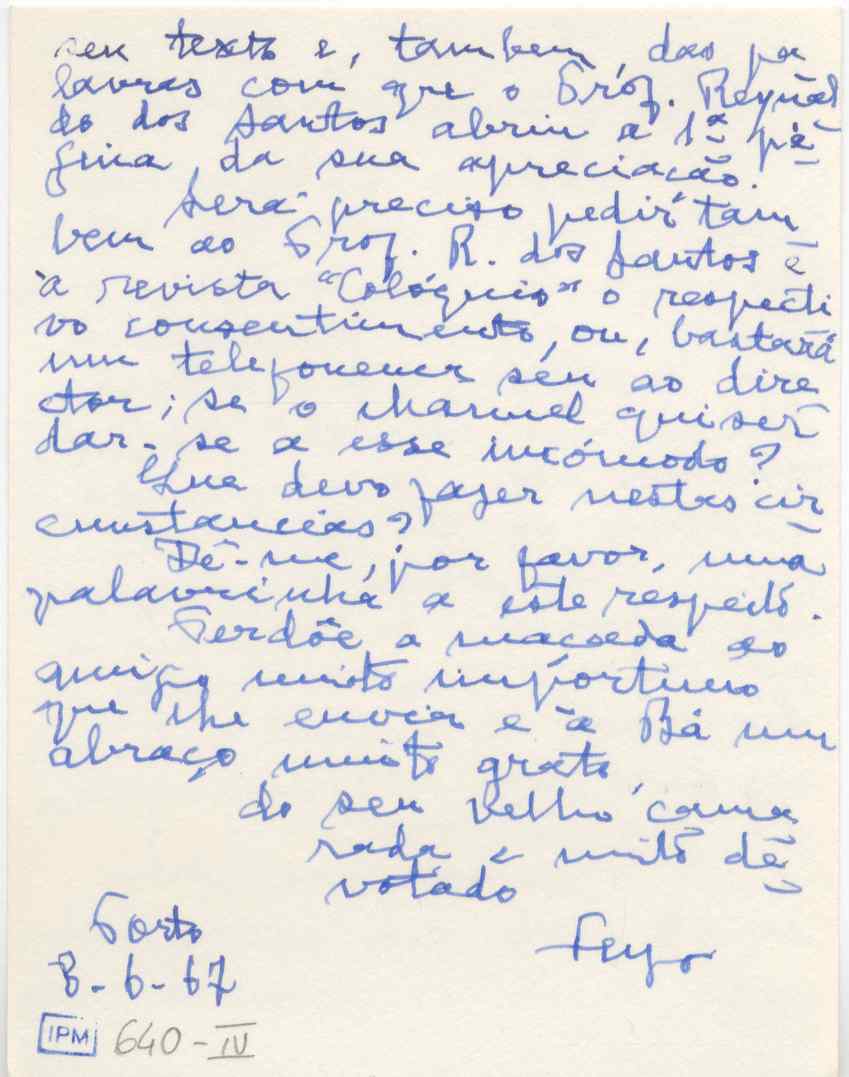 seu texto e, tambem, das pa
lavras com que o Prof. Reynal
do dos Santos abriu a 1ª pá
gina da sua apreciação.
Será preciso pedir tam
bem ao Prof. R. dos Santos e
à revista "Colóquio" o respecti
vo consentimento, ou, bastará
um telefonema seu ao dire
ctor; se o Manuel quiser
dar-se a esse incómodo?
Que devo fazer nestas cir
cunstancias?
Dê-me, por favor, uma
palavrinha a este respeito.
Perdôe a massada ao
amigo muito importuno
que lhe envia e à Bá um
abraço muito grato
do seu velho cama
rada e muito de
votado
Feyo
Porto
8-6-67
IPM 640-IV